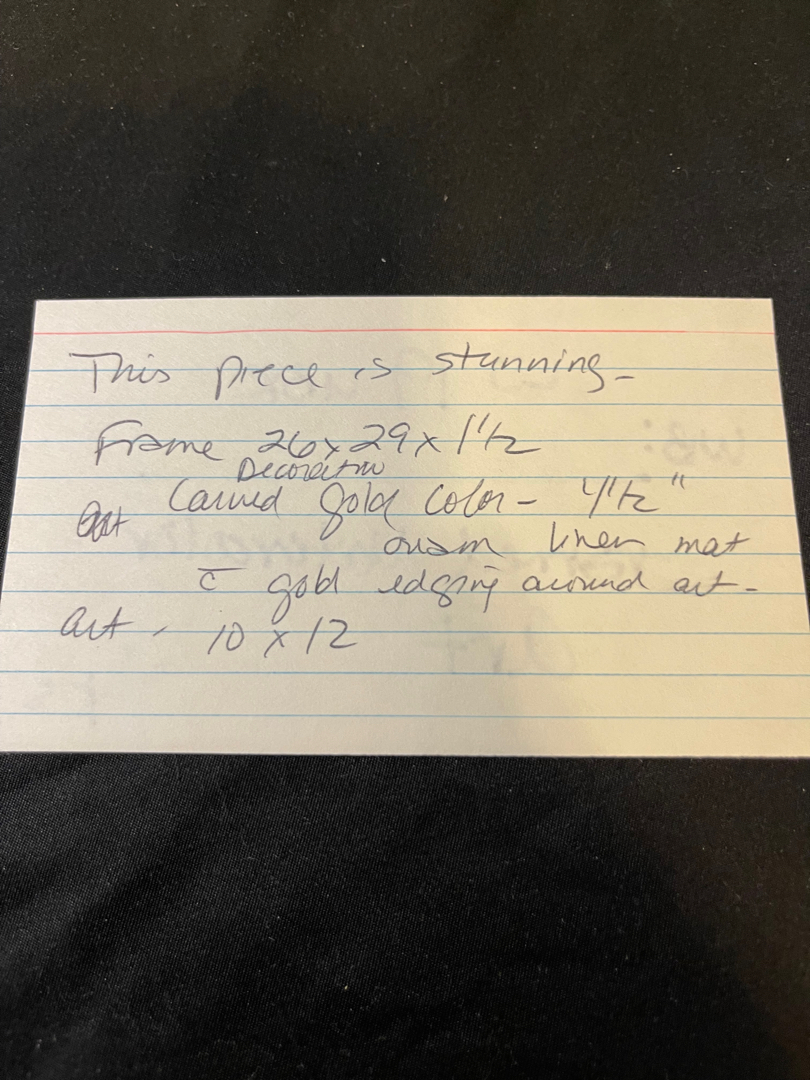 This piece is stunning-
Frame 26 x 29 x 1 1/2
Decorative
Carved gold color - 4 1/2"
linen mat
c̄ gold edging around art -
art - 10 x 12